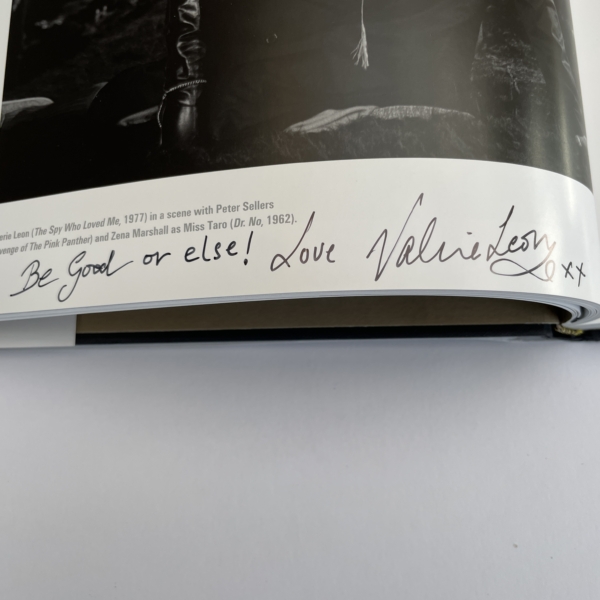 erie Leon (The Spy Who Loved Me, 1977) in a scene with Peter Sellers
venge of The Pink Panther) and Zena Marshall as Miss Taro (Dr. No, 1962).
Be Good or else! Love Valerie Leon xx